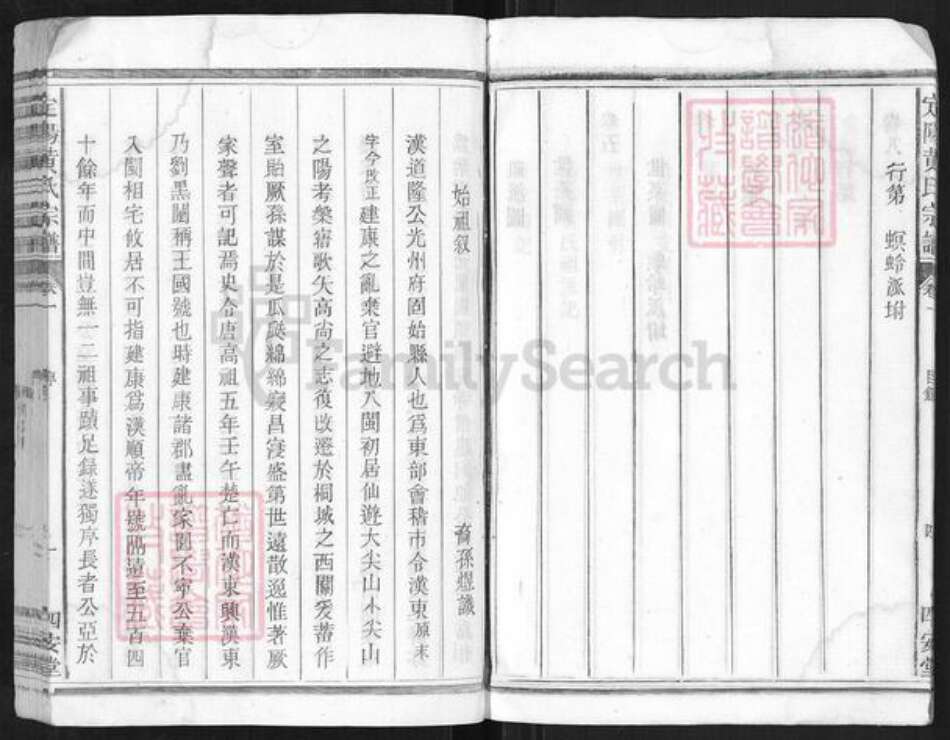 定陽黃氏宗譜
卷一
目錄
四安堂
行第 螟蛉派坿
始祖叙
裔孫煜識
漢道隆公光州府固始縣人也爲東部會稽市令漢東原末
字今改正建康之亂棄官避地入閩初居仙遊大尖山小尖山
之陽考槃寤歌矢高尚之志復改遷於桐城之西關爰蓄作
室貽厥孫謀於是瓜瓞綿綿寢昌寖盛第世遠散逸惟著厥
家聲者可記焉史令唐高祖五年壬午楚亡而漢東興漢東
乃劉黑闥稱王國號也時建康諸郡盡亂家園不寧公棄官
入閩相宅攸居不可指建康爲漢順帝年號隔遠至五百四
十餘年而中間豈無一二祖事蹟足錄遂獨序長者公亞於
定陽黃氏宗譜
卷一
序
一
四安堂
FamilySearch